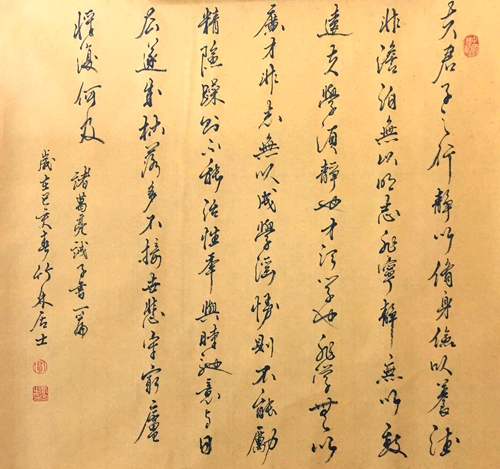 夫君子之行靜以脩身儉以養德
非澹泊無以明志非寧靜無以致
遠夫學須靜也才須學也非學無以
廣才非志無以成學淫慢則不能勵
精險躁則不能治性年與時馳意与日
去遂成枯落多不接世悲守窮廬
將復何及
諸葛亮誡子書一篇
歲在己亥春竹林居士